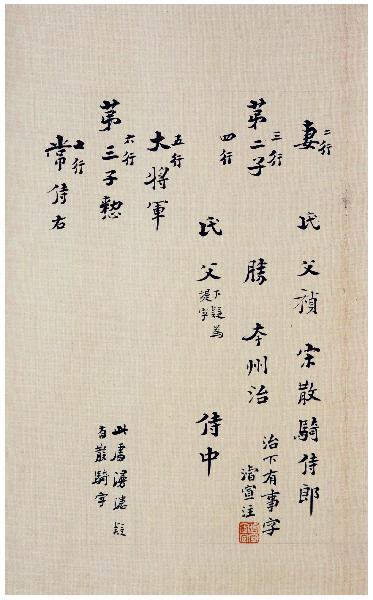 二行
妻 氏父禎 宋散騎侍郎
治下有事字
濬宣注
三行
第二子 勝 本州治
四行
氏父 侍中
下疑為
字
五行
大將軍
六行
第三子
七行
常侍右
此處漫漶疑
有散騎字